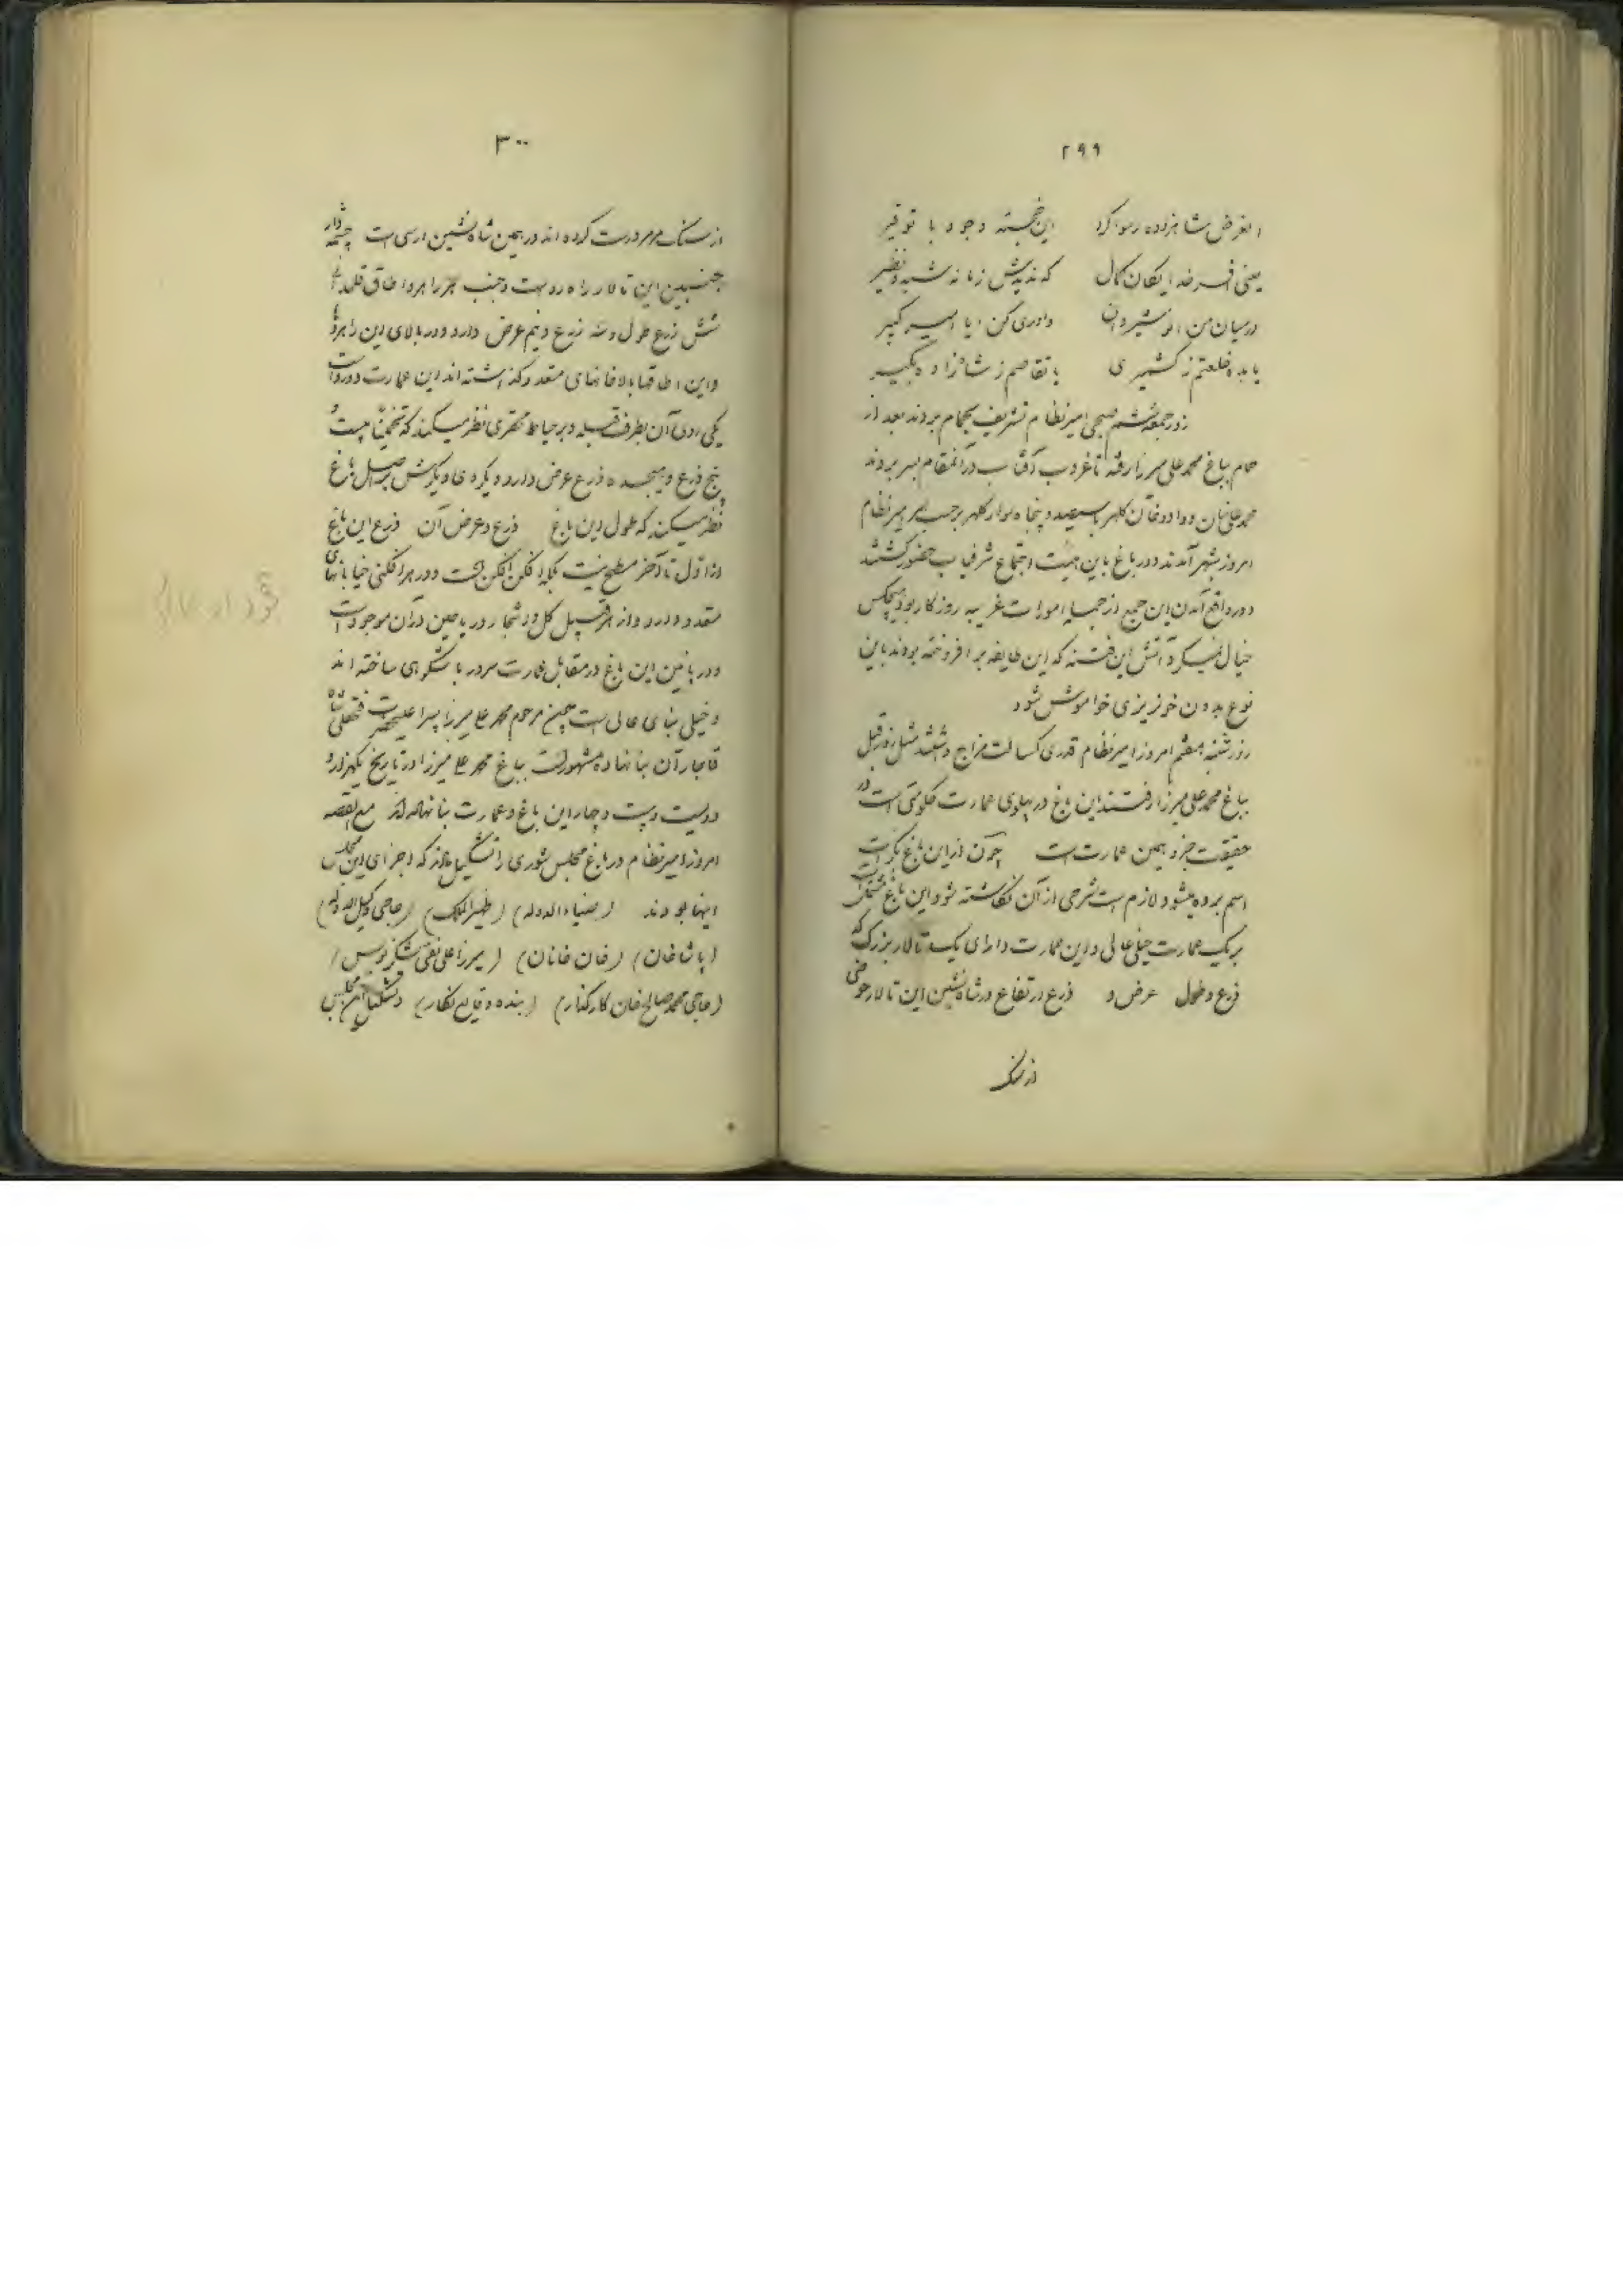 ۲۹۹
الغرض شاهزاده رسوا کرد این خجسته وجود با توقیر
یعنی فرخدا یکان کمال که ندیدش زمانه شبه و نظیر
در میان من انوشیروان داوری کن ایا امیر کبیر
یا بده خلعتم ز کشمیری یا تقاصم ز شاهزاده بگیر
روز جمعه ششم صبحی امیرنظام تشریف بحمام بردند بعد از
حمام بباغ محمد علی میرزا رفته تا غروب آفتاب در آنمقام بسر بردند
محمد علیخان و داودخان کلهر با سیصد و پنجاه سوار کلهر بر حسب امر امیرنظام
امروز بشهر آمدند و در باغ باین هیئت اجتماع شرفیاب حضور گشتند
و در واقع آمدن این جمع از جمله امورات غریبه روزگار بود هیچکس
خیال نمیکرد آتش این فتنه که این طایفه بر افروخته بودند باین
نوع بدون خونریزی خواموش شود
روز شنبه هفتم امروز امیرنظام قدری کسالت مزاج داشتند مثل روز قبل
بباغ محمد علی میرزا رفتند این باغ در پهلوی عمارت حکومتی است در
حقیقت جزو همین عمارت است چون از این باغ
اسم برده میشود لازم است شرحی از آن نگاشته شود این باغ مشتمل است
بر یک عمارت خیلی عالی و این عمارت دارای یک تالار بزرگ که
ذرع و طول عرض و ذرع ارتفاع در شاه نشین این تالار حوضی
از سنگ
۳۰۰
از سنگ مرمر درست کرده اند در همین شاه نشین ارسی است چشمه دار
جنبین این تالار راهرو است و جنب هر راهرو اطاق
شش ذرع طول و سه ذرع و نیم عرض دارد و در بالای این راهروها
و این اطاقها بالاخانهای متعدد گذاشته اند این عمارت دورو است
یکی روی آن بطرف قبله و بر حیاط مختصری نظر میکند که تخمیناً بیست و
پنج ذرع و هیجده ذرع عرض دارد و یکروی دیگرش بر اصل باغ
نظر میکند که طول این باغ ذرع و عرض آن ذرع این باغ
از اول تا آخر مسطح نیست بلکه افکن افکن است و در هر افکنی خیابانهای
متعدد دارد و از هر قبیل گل و اشجار و ریاحین در آن موجود است
و در پائین این باغ در مقابل عمارت سردر با شکوهی ساخته اند
و خیلی بنای عالی است چون مرحوم محمد علی میرزا پسر اعلیحضرت فتحعلی شاه
قاجار آن بنا نهاده مشهور است بباغ محمد علی میرزا در تاریخ یکهزار و
دویست و بیست و چهار این باغ و عمارت بنا نهاده اند مع القصه
امروز امیرنظام در باغ مجلس شوری را تشکیل دادند که اجزای این مجلس
اینها بودند (ضیاءالدوله) (ظهیرالملک) (حاجی وکیل الدوله)
(پاشاخان) (خان خانان) (میرزا علی نقی لشکرنویس)
(حاجی محمد صالح خان کارگذار) (بنده وقایع نگار) و تشکیل این مجلس